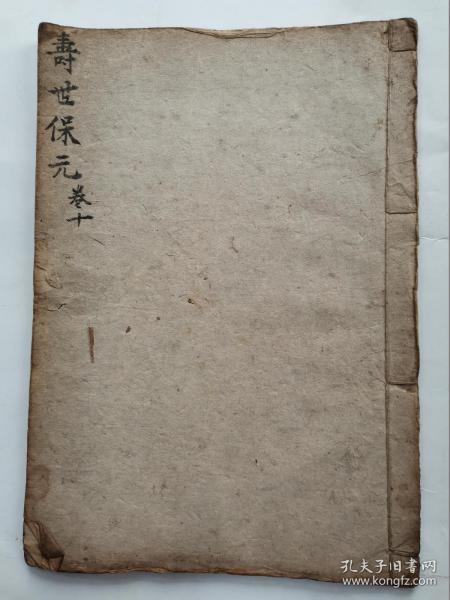 壽世保元
卷十
孔夫子旧书网
www.kongfz.com